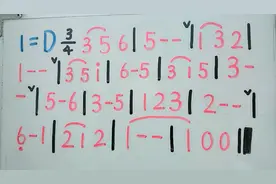 1=D 3/4 3 5 6 | 5 - - ∨ | i 3 2 |
1 - - ∨ | 3 5 i | 6 - 5 | 3 i 5 | 3 -
- ∨ | 5 - 6 | 3 - 5 | 1 2 3 | 2 - - ∨ |
6̣ - 1 | 2 i 2 | 1 - - | 1 0 0 ‖